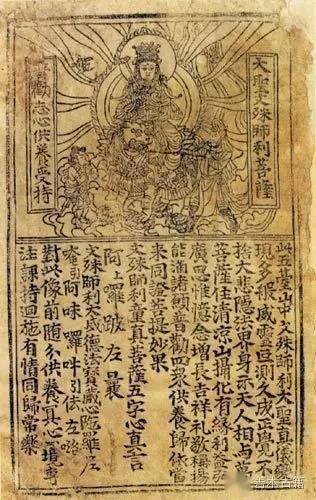 大聖文殊師利菩薩
普勸志心供養受持
此五臺山中文殊師利大聖真儀變
現多般威靈叵測久成正覺不
捨大悲隱法界身示天人相與萬
菩薩住清涼山攝化有緣利益弘
廣思惟憶念增長吉祥礼敬稱揚
能滿諸願普勸四眾供養歸依當
來同證菩提妙果
文殊師利童真菩薩五字心真言
阿上囉跛左曩
文殊師利大威德法寶藏心陁羅尼
唵引阿味囉吽引佉左咯
對此像前随分供養冥心一境專
注課持迴施有情同歸常樂
善本古籍